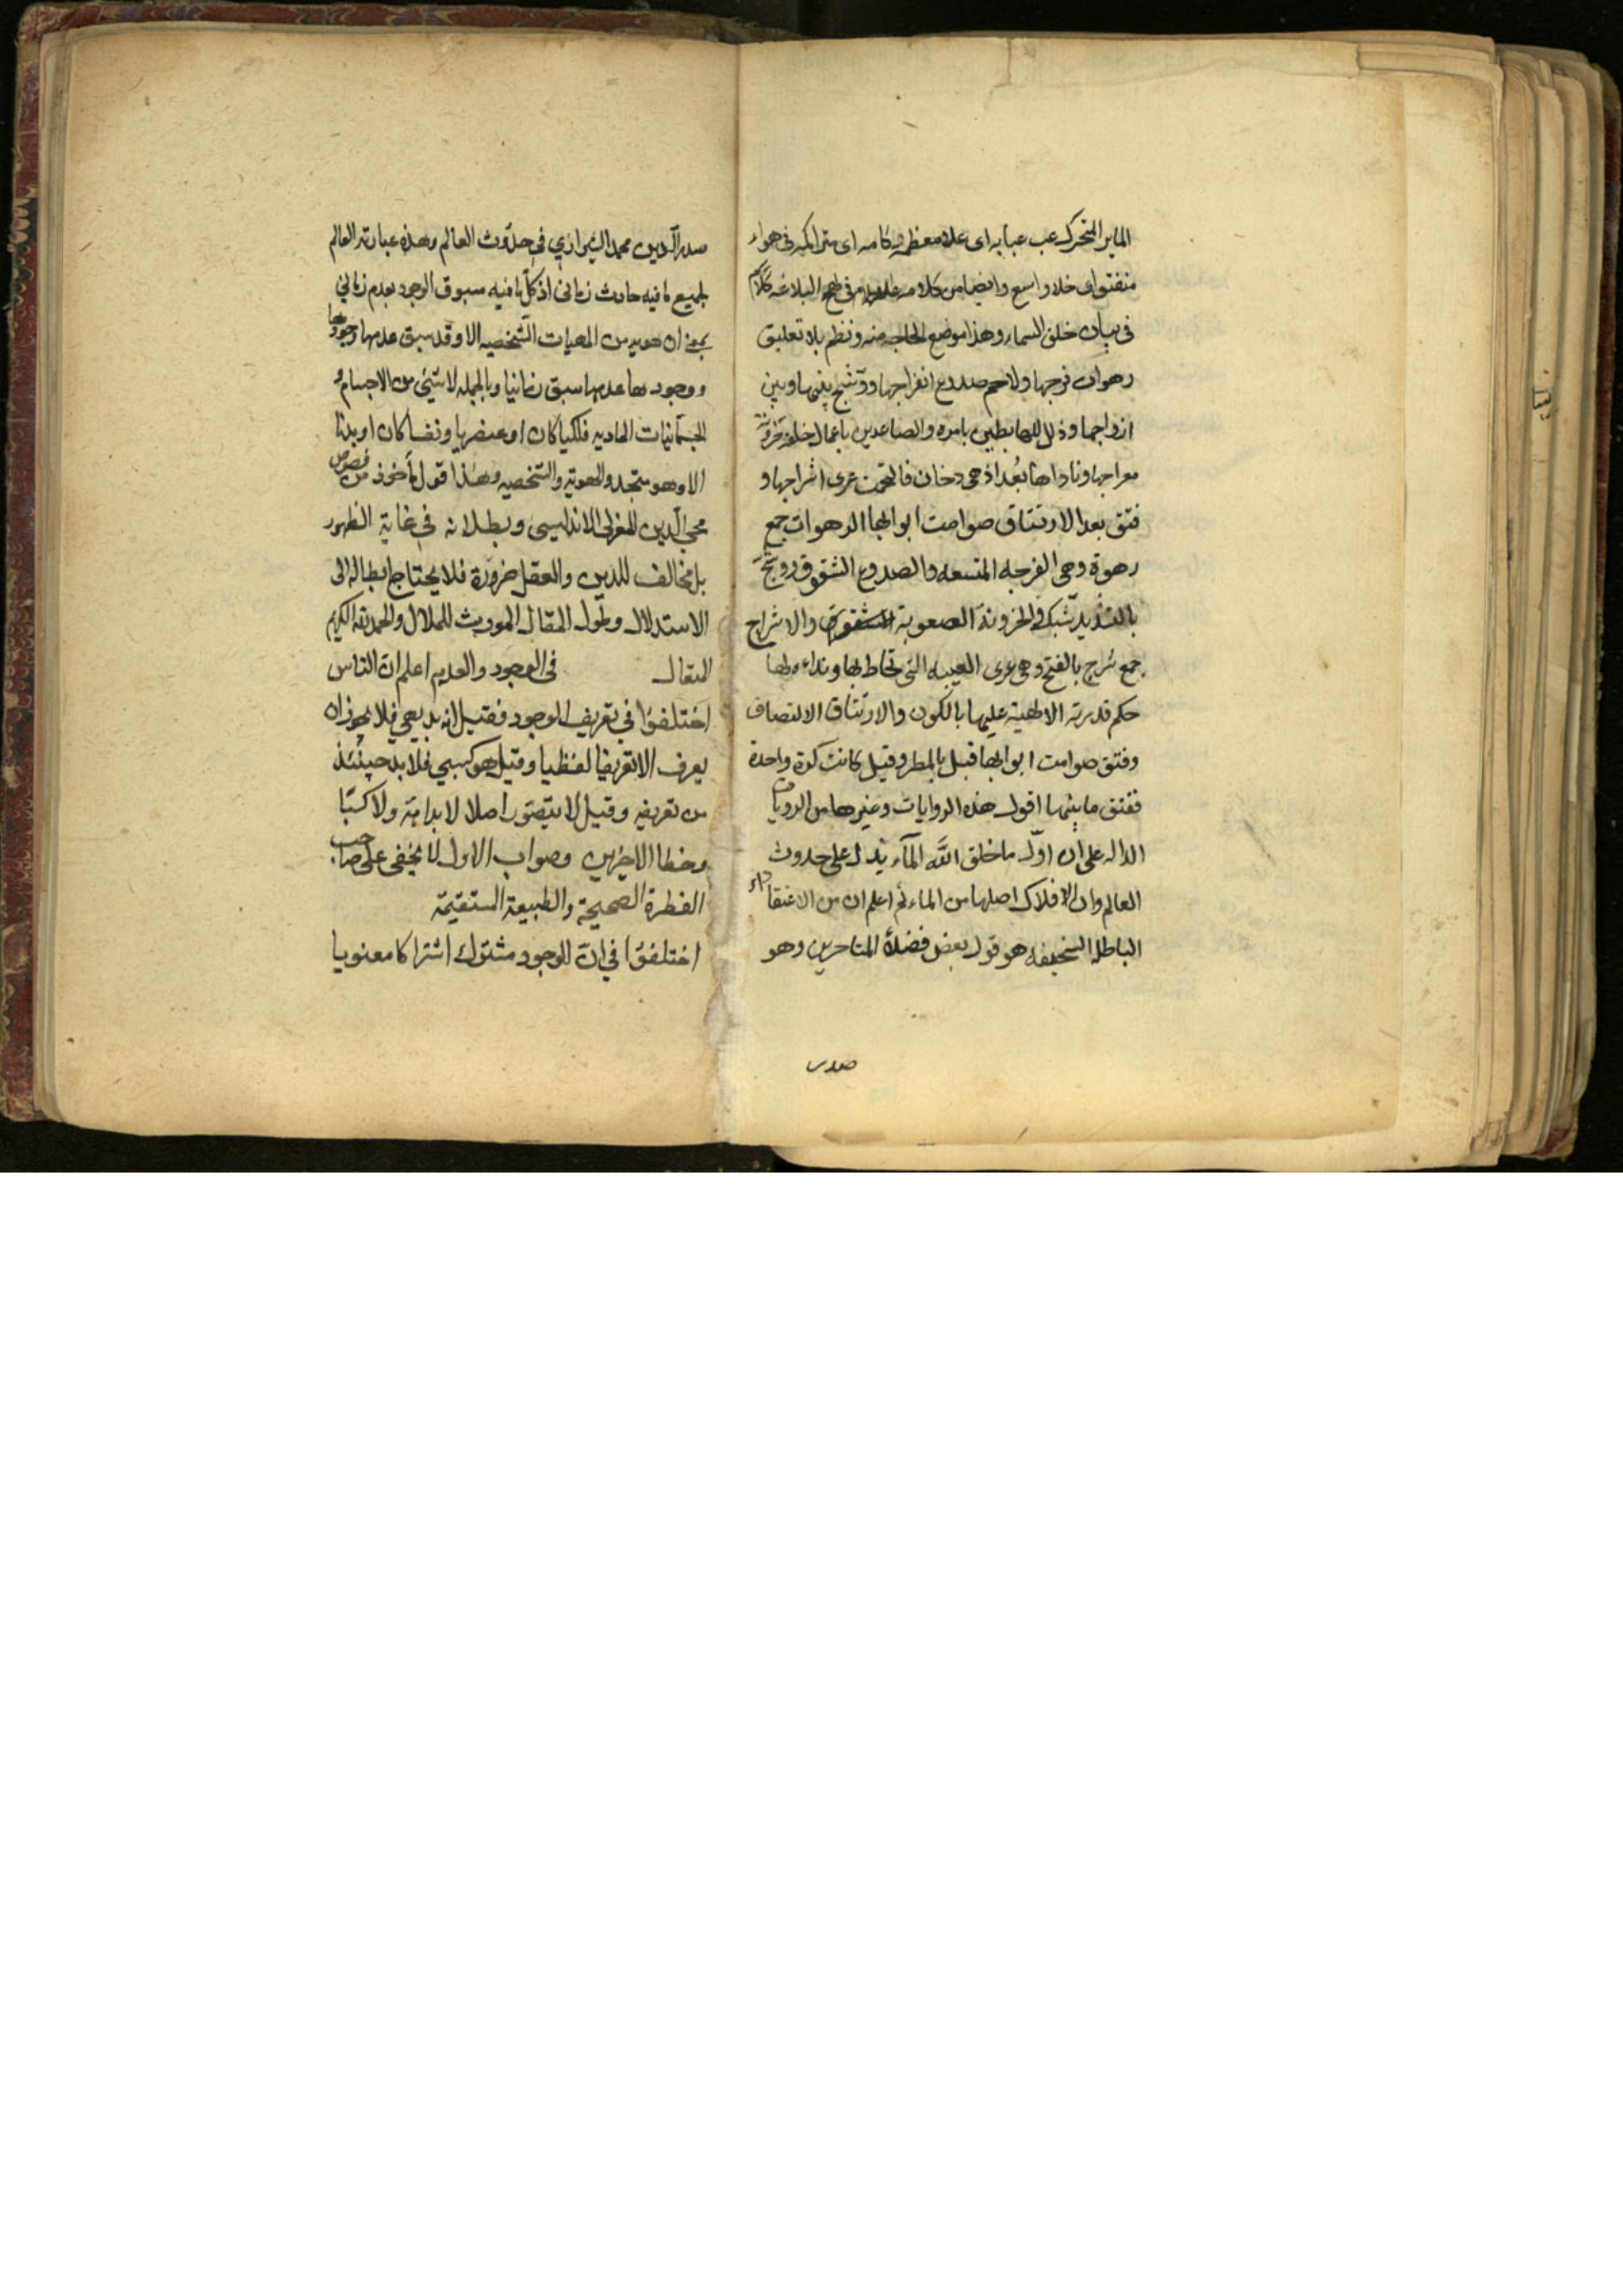 المتحرك عب عبابه اى علا معظمه ركامه اى متراكمه فى هواء
منفتق اى خلا واسع وايضا من كلامه عليه السلام فى نهج البلاغه كلام
فى بيان خلق السماء وهذا موضع الحاجه منه ونظم بلا تعليق
رهوات فرجها ولاحم صدوع انفراجها ووشج بينها وبين
ازواجها وذلل للهابطين بامره والصاعدين باعمال خلقه حزونة
معراجها وناداها بعد اذ هى دخان فالتحمت عرى اشراجها و
فتق بعد الارتتاق صوامت ابوابها الرهوات جمع
رهوة وهى الفرجه المتسعه والصدوع الشقوق ووشج
بالتشديد شبك والحزونة الصعوبة والاشراج
جمع شرج بالفتح وهى عرى العيبه التى تخاط بها ونداءه لها
حكم قدرته الالهية عليها بالكون والارتتاق الالتصاق
وفتق صوامت ابوابها قيل بالمطر وقيل كانت كرة واحدة
ففتق ما بينها اقول هذه الروايات وغيرها من الروايات
الداله على ان اول ما خلق الله المآء يدل على حدوث
العالم وان الافلاك اصلها من الماء ثم اعلم ان من الاعتقادات
الباطله السخيفه هو قول بعض فضلاء المتاخرين وهو
صدر
صدر الدين محمد الشيرازي فى حدوث العالم وهذه عبارته العالم
بجميع ما فيه حادث زمانى اذ كل ما فيه مسبوق الوجود بعدم زمانى
بمعنى ان هويه من الهويات الشخصيه الا وقد سبق عدمها وجودها
ووجودها عدمها سبقا زمانيا وبالجمله لا شيئ من الاجسام و
الجسمانيات الماديه فلكيا كان او عنصريا ونفسا كان او بدنا
الا وهو متجدد الهوية والشخصيه وهذا قول مأخوذ من فصوص
محي الدين المغربى الاندلسى وبطلانه فى غاية الظهور
بل مخالف للدين والعقل ضرورة فلا يحتاج ابطاله الى
الاستدلال وطول المقال المورث للملال والحمد لله الكريم
المتعال فى الوجود والعدم اعلم ان الناس
اختلفوا فى تعريف الوجود فقيل انه بديهى فلا يجوز ان
يعرف الا تعريفا لفظيا وقيل هو كسبي فلا بد حينئذ
من تعريفه وقيل لا يتصور اصلا لا بداهة ولا كسبا
وخطا الاخيرين وصواب الاول لا يخفى على صاحب
الفطرة الصحيحة والطبيعة المستقيمة
اختلفوا فى ان الوجود مشترك اشتراكا معنويا